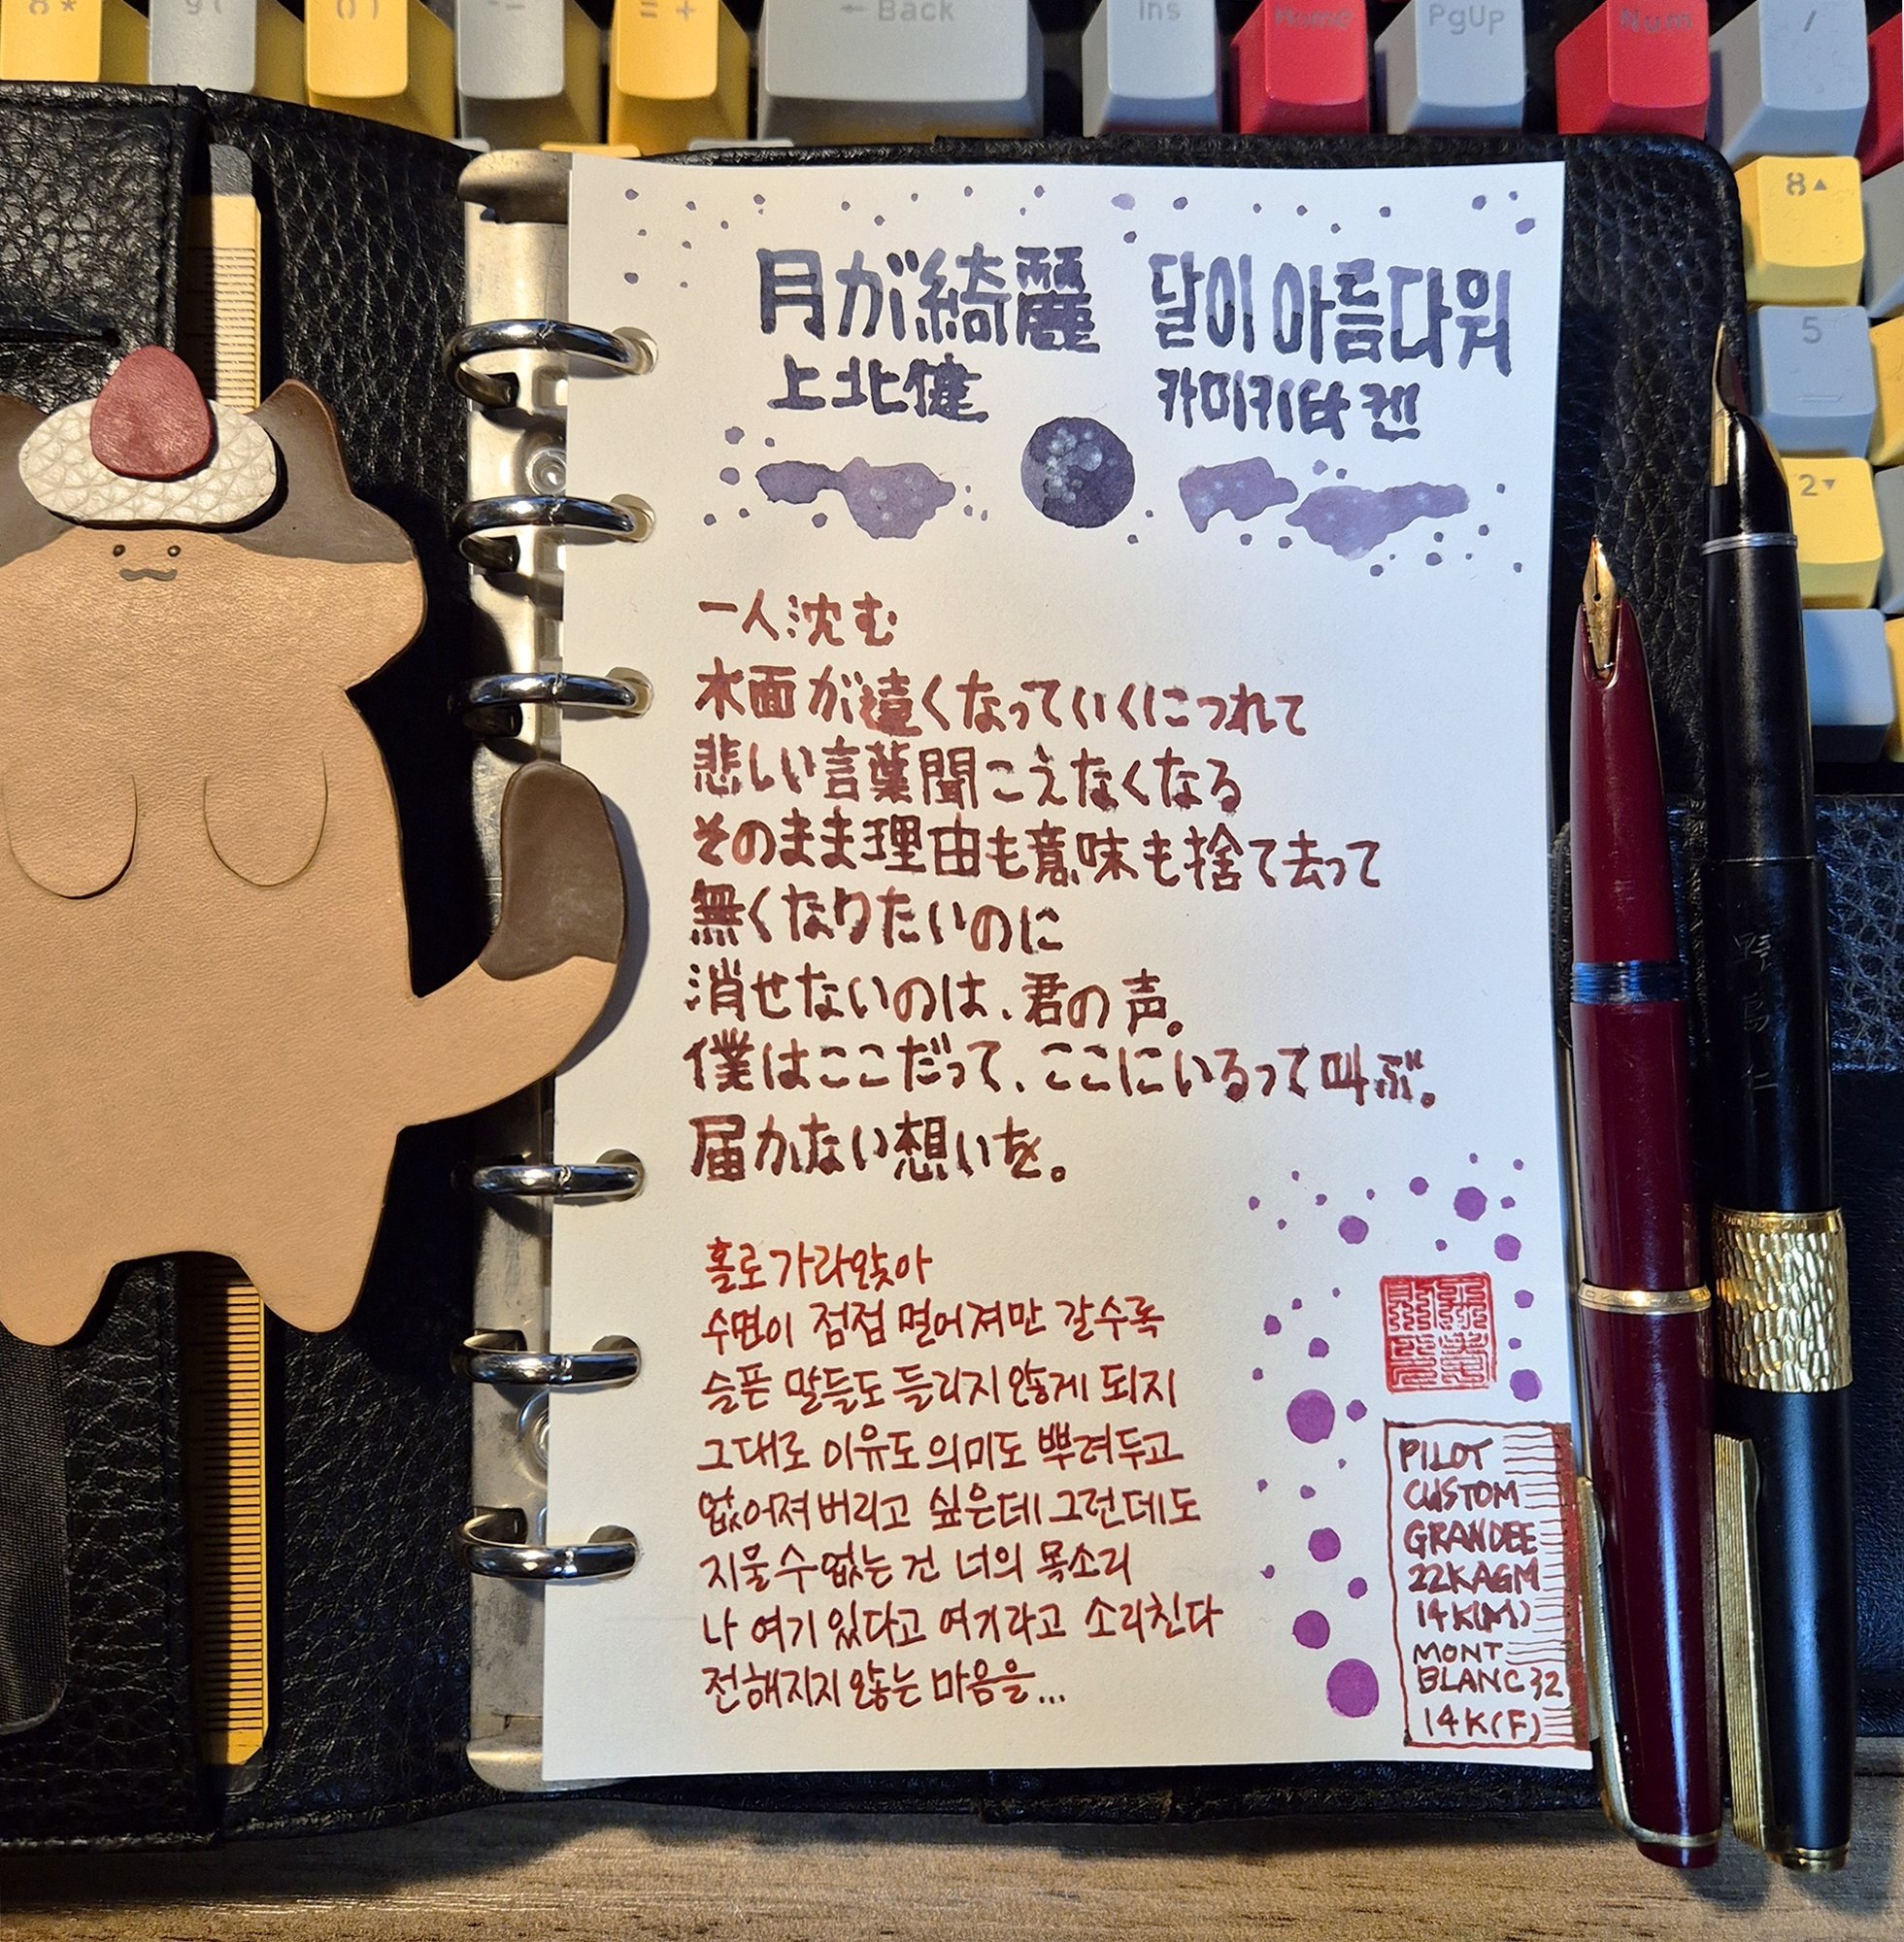 ← Back
Ins
Home
PgUp
Num
/
8
5
2
月が綺麗 달이 아름다워
上北健 카미키타 켄
一人沈む
水面が遠くなっていくにつれて
悲しい言葉聞こえなくなる
そのまま理由も意味も捨て去って
無くなりたいのに
消せないのは、君の声。
僕はここだって、ここにいるって叫ぶ。
届かない想いを。
홀로 가라앉아
수면이 점점 멀어져만 갈수록
슬픈 말들도 들리지 않게 되지
그대로 이유도 의미도 뿌려두고
없어져 버리고 싶은데 그런데도
지울 수 없는 건 너의 목소리
나 여기 있다고 여기라고 소리친다
전해지지 않는 마음을...
PILOT
CUSTOM
GRANDEE
22KAGM
14K(M)
MONT
BLANC 32
14K(F)